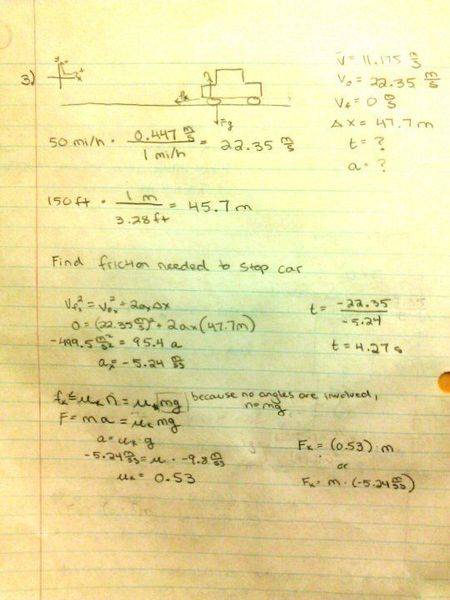 3)
V̄ = 11.175 m/s
V₀ = 22.35 m/s
Vf = 0 m/s
Δx = 47.7 m
t = ?
a = ?
Fg
50 mi/h · 0.447 m/s / 1 mi/h = 22.35 m/s
150 ft · 1 m / 3.28 ft = 45.7 m
Find friction needed to stop car
Vfx² = V0x² + 2ax Δx
0 = (22.35 m/s)² + 2ax (47.7m)
-499.5 m²/s² = 95.4 a
ax = -5.24 m/s
t = -22.35 / -5.24
t = 4.27 s
fk ≤ μk n = μk mg | because no angles are involved, n = mg
F = ma = μk mg
a = μk g
-5.24 m/s² = μ · -9.8 m/s²
μk = 0.53
Fk = (0.53) · m
or
Fk = m · (-5.24 m/s²)